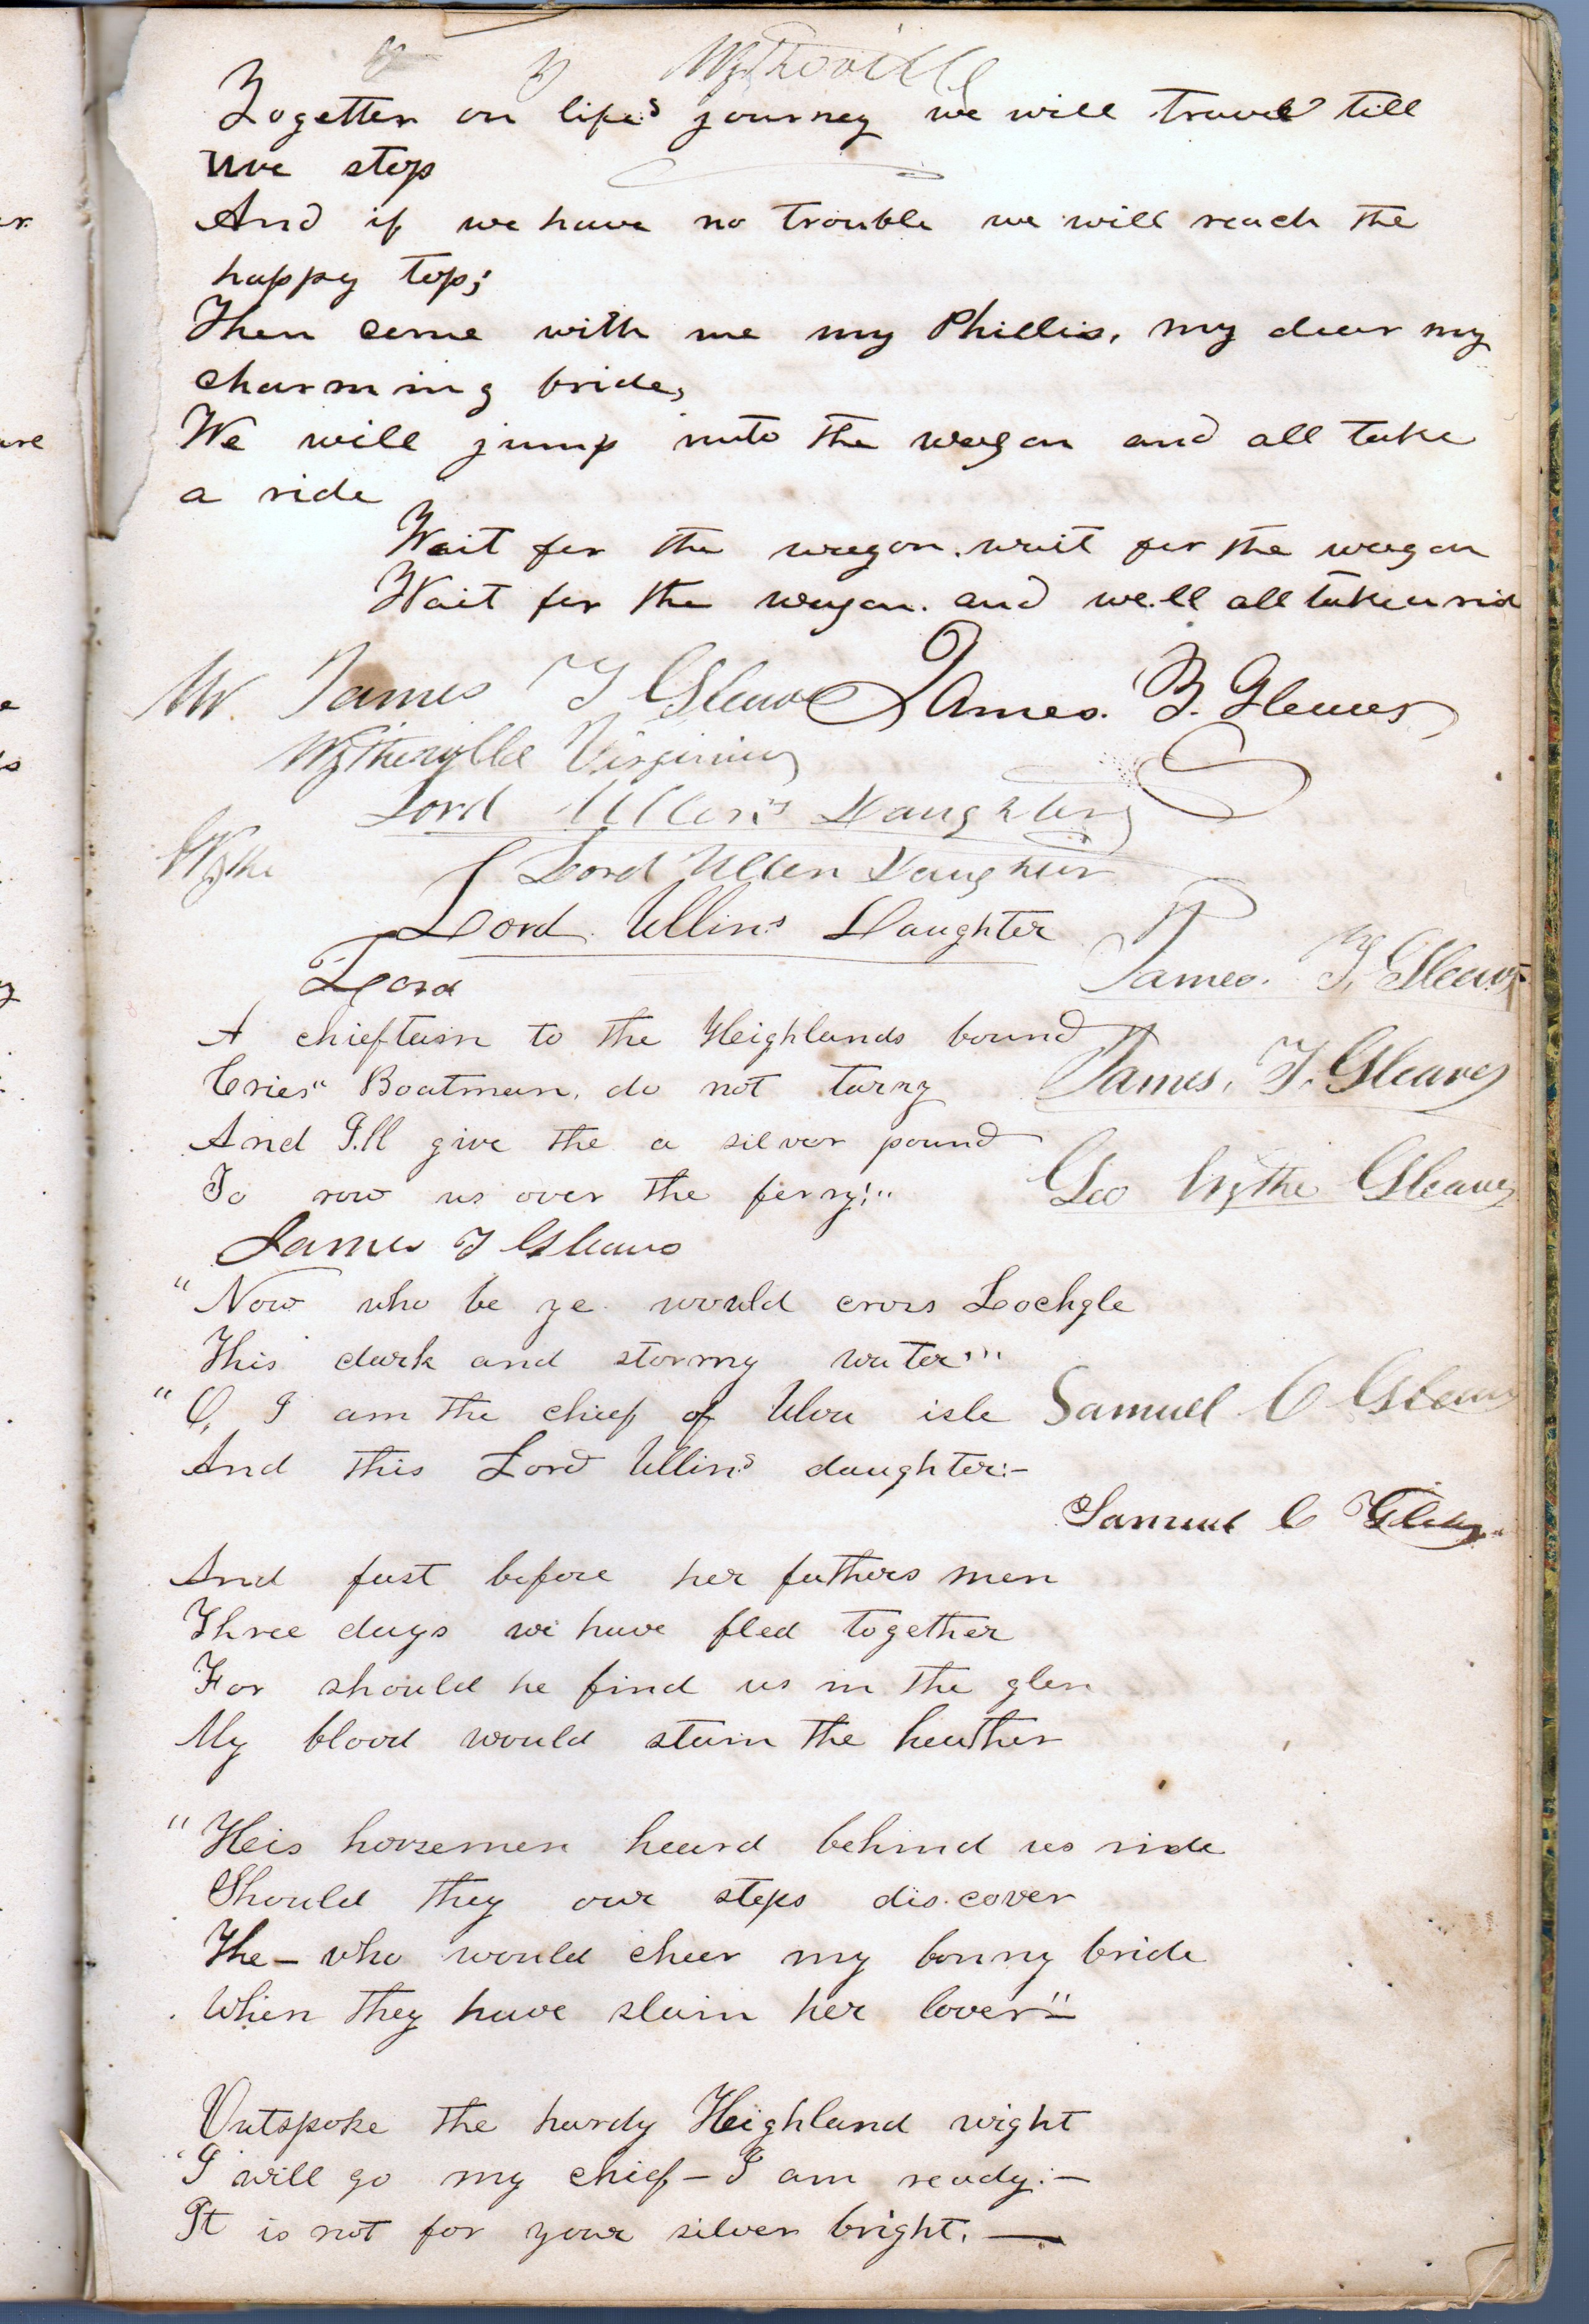 Wytheville
Together on life's journey we will travel till
we stop
And if we have no trouble we will reach the
happy top;
Then come with me my Phillis, my dear my
charming bride,
We will jump into the wagon and all take
a ride
Wait for the wagon. wait for the wagon
Wait for the wagon. and we.ll all take a rid
Mr. James T Gleaves James. T. Gleaves
Wytheville Virginia
Lord Ullen's Daughter
Wythe
Lord Ullen Daughter
Lord Ullin's Daughter
Lord
James. T. Gleaves
A chieftain to the Heighlands bound
Cries" Boatman, do not tarry
James. T. Gleaves
And I'll give the a silver pound
To row us over the ferry!"
Geo Wythe Gleaves
James T Gleaves
"Now who be ye would cross Lochgle
This dark and stormy water"
"O, I am the chief of Ulva isle
Samuel C Gleaves
And this Lord Ullin's daughter:-
Samuel C Gleaves
And fast before her fathers men
Three days we have fled together
For should he find us in the glen
My blood would stain the heather
"Heis horsemen heard behind us ride
Should they our steps dis.cover
The - who would cheer my bonny bride
When they have slain her lover"-
Outspoke the hardy Heighland wight
"I will go my chief - I am ready:-
It is not for your silver bright. —